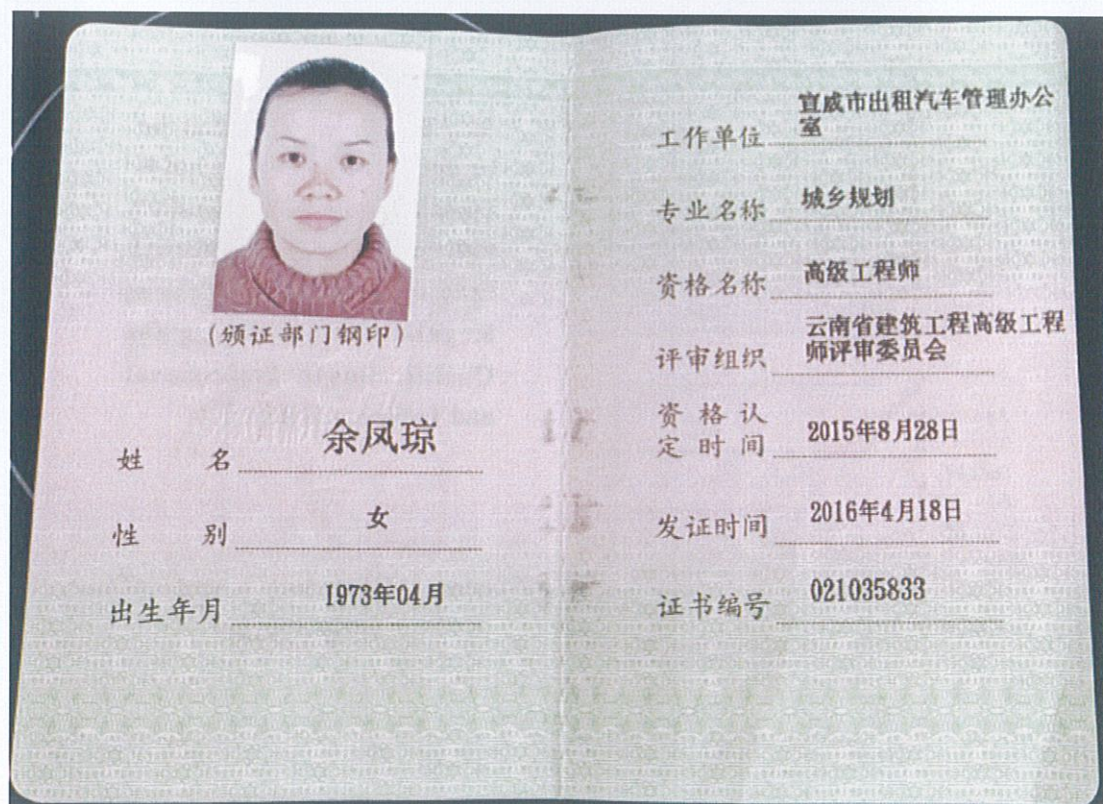 (颁证部门钢印)
姓 名 余凤琼
性 别 女
出生年月 1973年04月
工作单位 宣威市出租汽车管理办公
室
专业名称 城乡规划
资格名称 高级工程师
评审组织 云南省建筑工程高级工程
师评审委员会
资格认
定时间 2015年8月28日
发证时间 2016年4月18日
证书编号 021035833